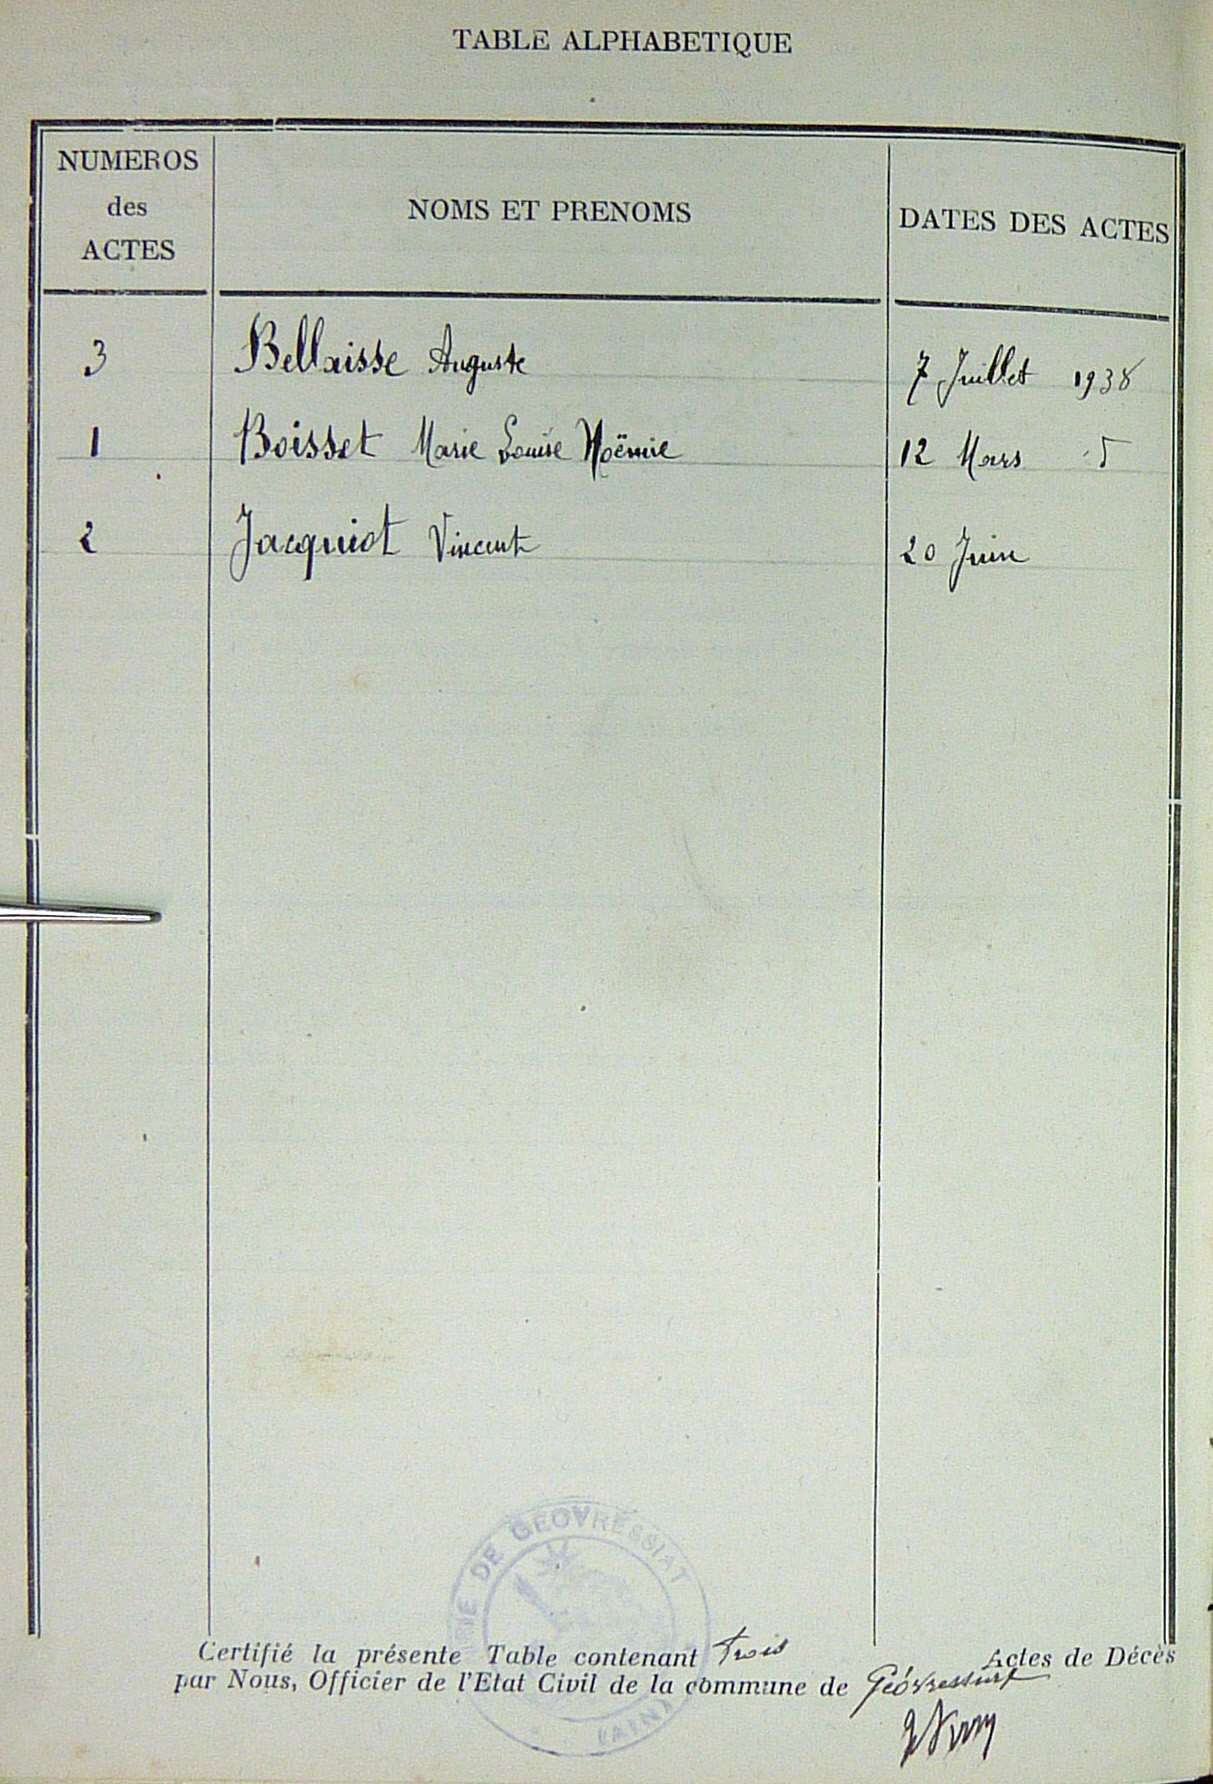 TABLE ALPHABETIQUE
NUMEROS des ACTES NOMS ET PRENOMS DATES DES ACTES
3 Bellaisse Auguste 7 Juillet 1938
1 Boisset Marie Louise Noëmie 12 Mars
2 Jacquiot Vincent 20 Juin
MAIRIE DE GEOVRESSIAT
(AIN)
Certifié la présente Table contenant trois Actes de Décès
par Nous, Officier de l'Etat Civil de la commune de Géovressiat